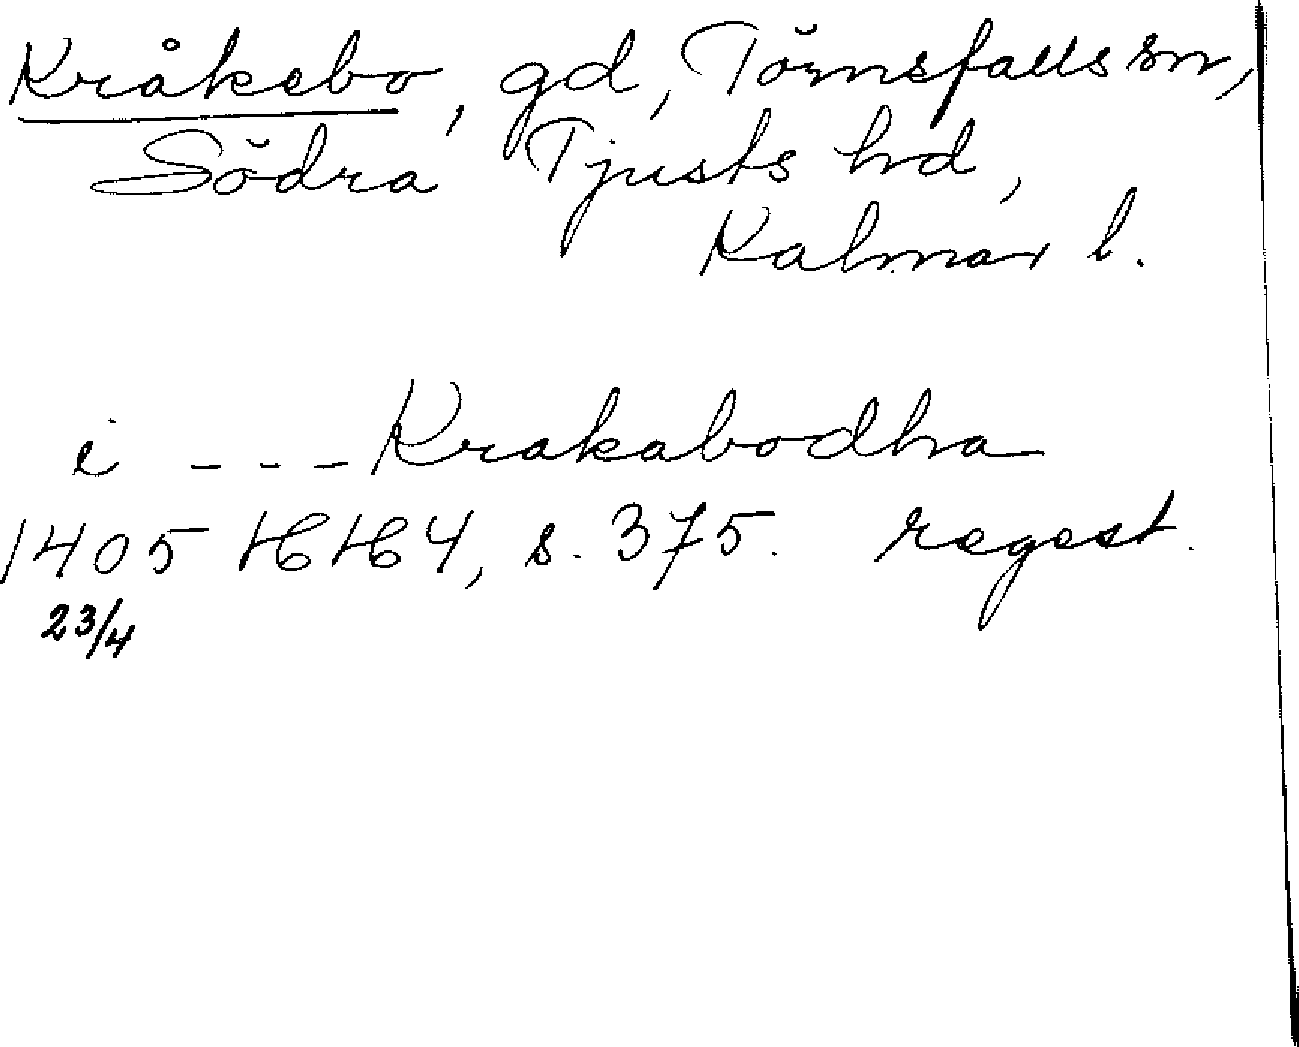 Kråkebo, gd, Törnsfalls sn,
Södra Tjusts hd,
Kalmar l.
i --- Krakabodha
1405 HH 4, s. 375. regest.
23/4